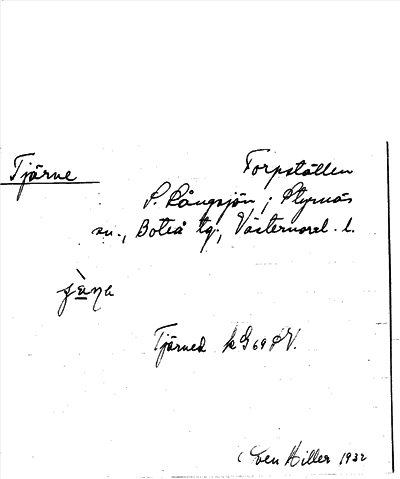 Tjärne
Torpställen
S. Långsjön; Styrnäs
sn., Boteå tg., Västernorrl. l.
Tjärned k G69 SV.
Sven Hiller 1932